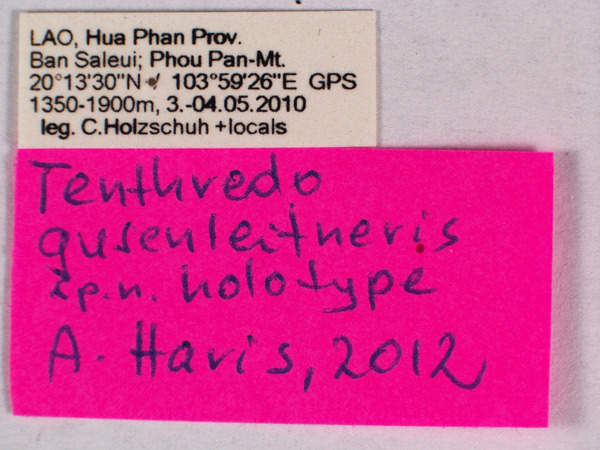 LAO, Hua Phan Prov.
Ban Saleui; Phou Pan-Mt.
20°13'30"N 103°59'26"E GPS
1350-1900m, 3.-04.05.2010
leg. C.Holzschuh +locals
Tenthredo
gusenleitneris
sp.n. holotype
A. Haris, 2012